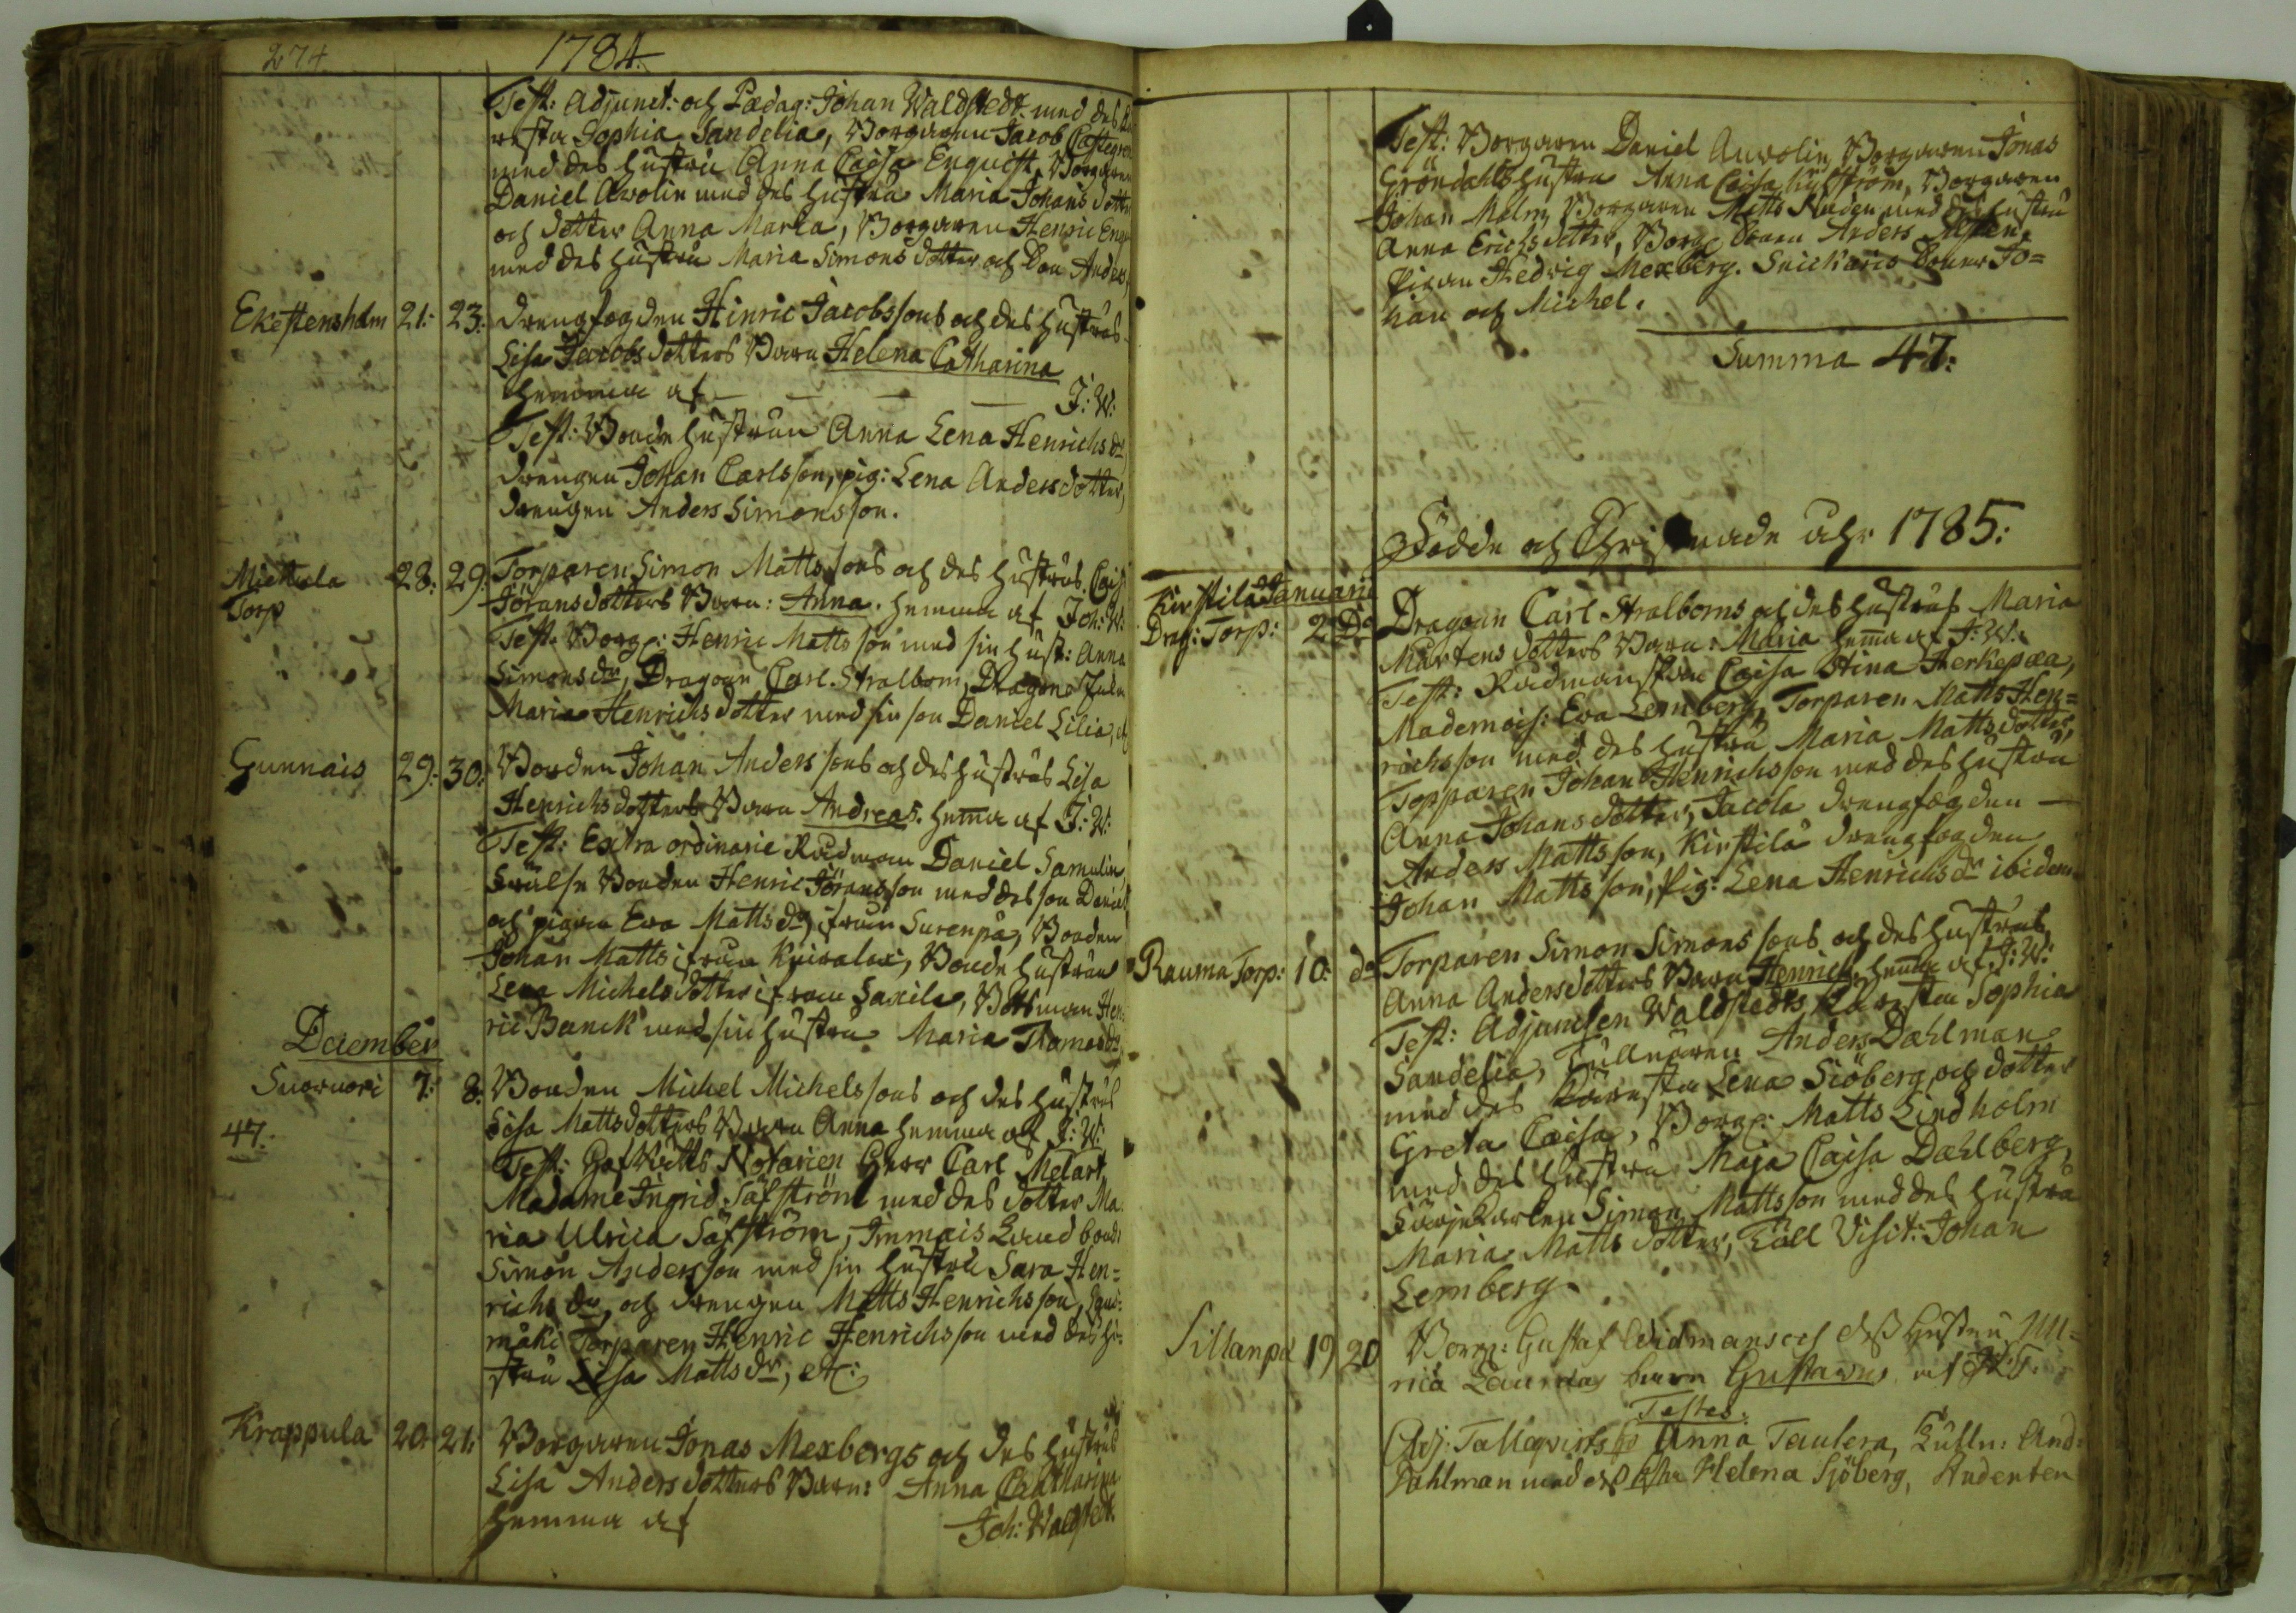 274.
1784.
Test: Adjunct: och Pædag: Johan Waldstedt med des
resta Sophia Sandelia, Borgaren Jacob Castegren
med des hustru Anna Caisa Enquist, Borgaren
Daniel Awolin med des hustru Maria Johans dotter
och dotter Anna Maria, Borgaren Henric
med des hustru Maria Simons dotter och Son Anders,
Ekestensholm 21: 23: Drengfogden Hinric Jacobssons och des hustrus
Lisa Jacobs dotters Barn Helena Catharina
hemma af — — — — J: W:
Test: Bonde hustrun Anna Lena Henrichs dr
drengen Johan Carlsson, pig: Lena Anders dotter,
drengen Anders Simonsson.
Mickola 28: 29: Torparen Simon Mattssons och des hustrus Caisa
Torp Jörans dotters Barn: Anna. hemma af Joh: W:
Test: Borg: Henric Mattsson med sin hust: Anna
Simonsdr, Dragoun Carl Stralbom, Dragons
Maria Henrichs dotter med sin son Daniel Lilia,
Gunnais 29: 30: Bonden Johan Anderssons och des hustrus Lisa
Henrichs dotters Barn Andreas. hemma af J: W:
Test: Extra ordinarie Rådman Daniel Samulin,
Frälse Bonden Henric Jöransson med des son Daniel
och pigan Eva Mattsdr ifrån Surenpä, Bonden
Johan Matts ifrån Knivalax, Bonde hustrun
Lena Michels dotter ifrån Saxila, Båtsman Hen:
ric Banck med sin hustru Maria Thomasdr
December
Suornori 7: 8: Bonden Michel Michelssons och des hustrus
Lisa Matts dotters Barn Anna hemma af J: W:
47:
Test: HofRätts Notarien Herr Carl Melart
Madame Ingrid Säfström med des dotter Ma
ria Ulrica Säfström, Immais Landbonde
Simon Andersson med sin hustru Sara Hen=
richs dr och drengen Matts Henrichsson,
mäki Torparen Henric Henrichsson med des hu=
stru Lisa Mattsdr, etc:
Krappula 20. 21: Borgaren Jonas Mexbergs och des hustrus
Lisa Anders dotters Barn: Anna Catharina
hemma af Joh: Waldstedt.
Test: Borgaren Daniel Auvolin, Borgaren Jonas
Gröndahls hustru Anna Caisa Nyström, Borgaren
Johan Malm, Borgaren Matts Ruden med des hustru
Anna Erichs dotter, Borg: Sonen Anders
Pigan Hedvig Mexberg. Snickaris Söner Jo=
han och Michel.
Summa 47:
Födde och Christnade åhr 1785:
Kirstilä Januarii
Drag: Torp: 2 Do Dragoun Carl Stralboms och des hustrus Maria
Mårtens dotters Barn: Maria hemma af J: W:
Test: Rådmanskan Caisa Stina Herkepæa,
Mademois: Eva Lemberg, Torparen Matts Hen=
richsson med des hustru Maria Matts dotter,
Torparen Johan Henrichsson med des hustru
Anna Johans dotter, Jacola drengfogden —
Anders Mattsson, Kirstilä drengfogden
Johan Mattsson, Pig: Lena Henrichsdr ibidem.
Rauma Torp: 10: do Torparen Simon Simonssons och des hustrus
Anna Anders dotters Barn Henrich. hemma af J: W:
Test: Adjuncten Waldstedts Käresta Sophia
Sandelia, Tullnären Anders Dahlman
med des Käresta Lena Siöberg och dotter
Greta Caisa, Borg: Matts Lindholm
med des hustru Maja Caisa Dahlberg,
Simon Mattsson med des hustru
Maria Matts dotter, Tull Visit: Johan
Lemberg.
Sillanpä 19 20 Borg: Gustaf Widmans och dess hustru Ul=
rica Laurdas barn Gustavus af
Testes.
Adj: Tallqvists Anna Taulera, Tulln: And:
Dahlman med dess Helena Sjöberg, Studenten